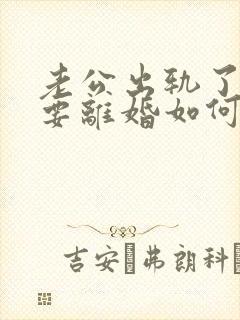 老公出轨了
要離婚如何
吉安·弗朗科·